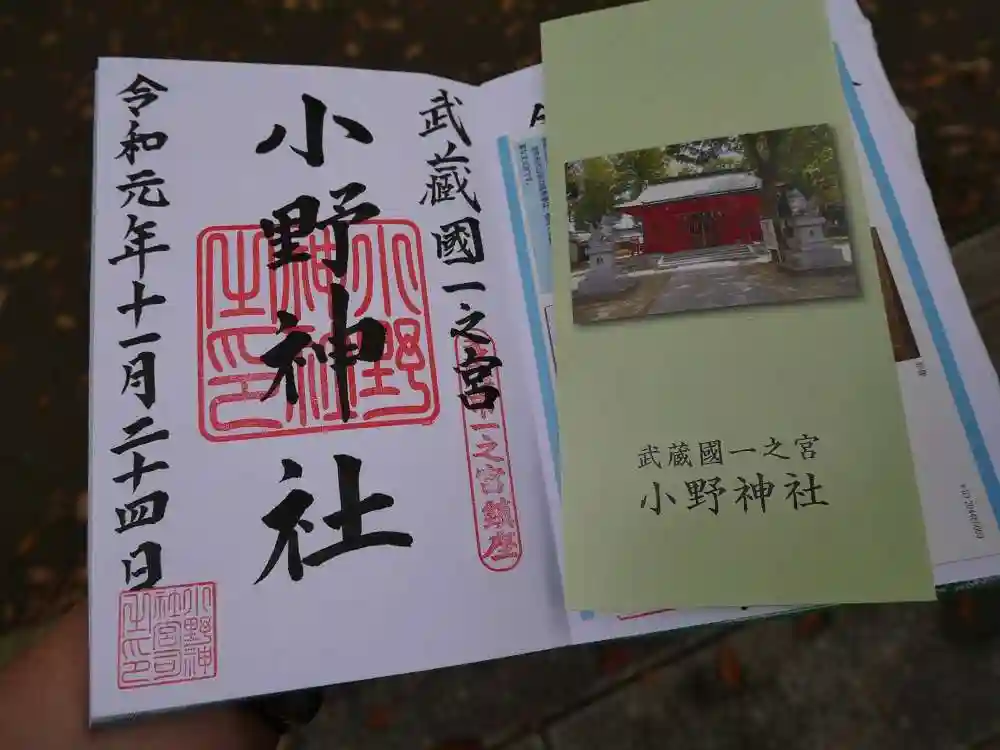 武蔵國一之宮
一之宮鎮座
小野神社
小野神社之印
令和元年十一月二十四日
小野神社宮司之印
武蔵國一之宮
小野神社